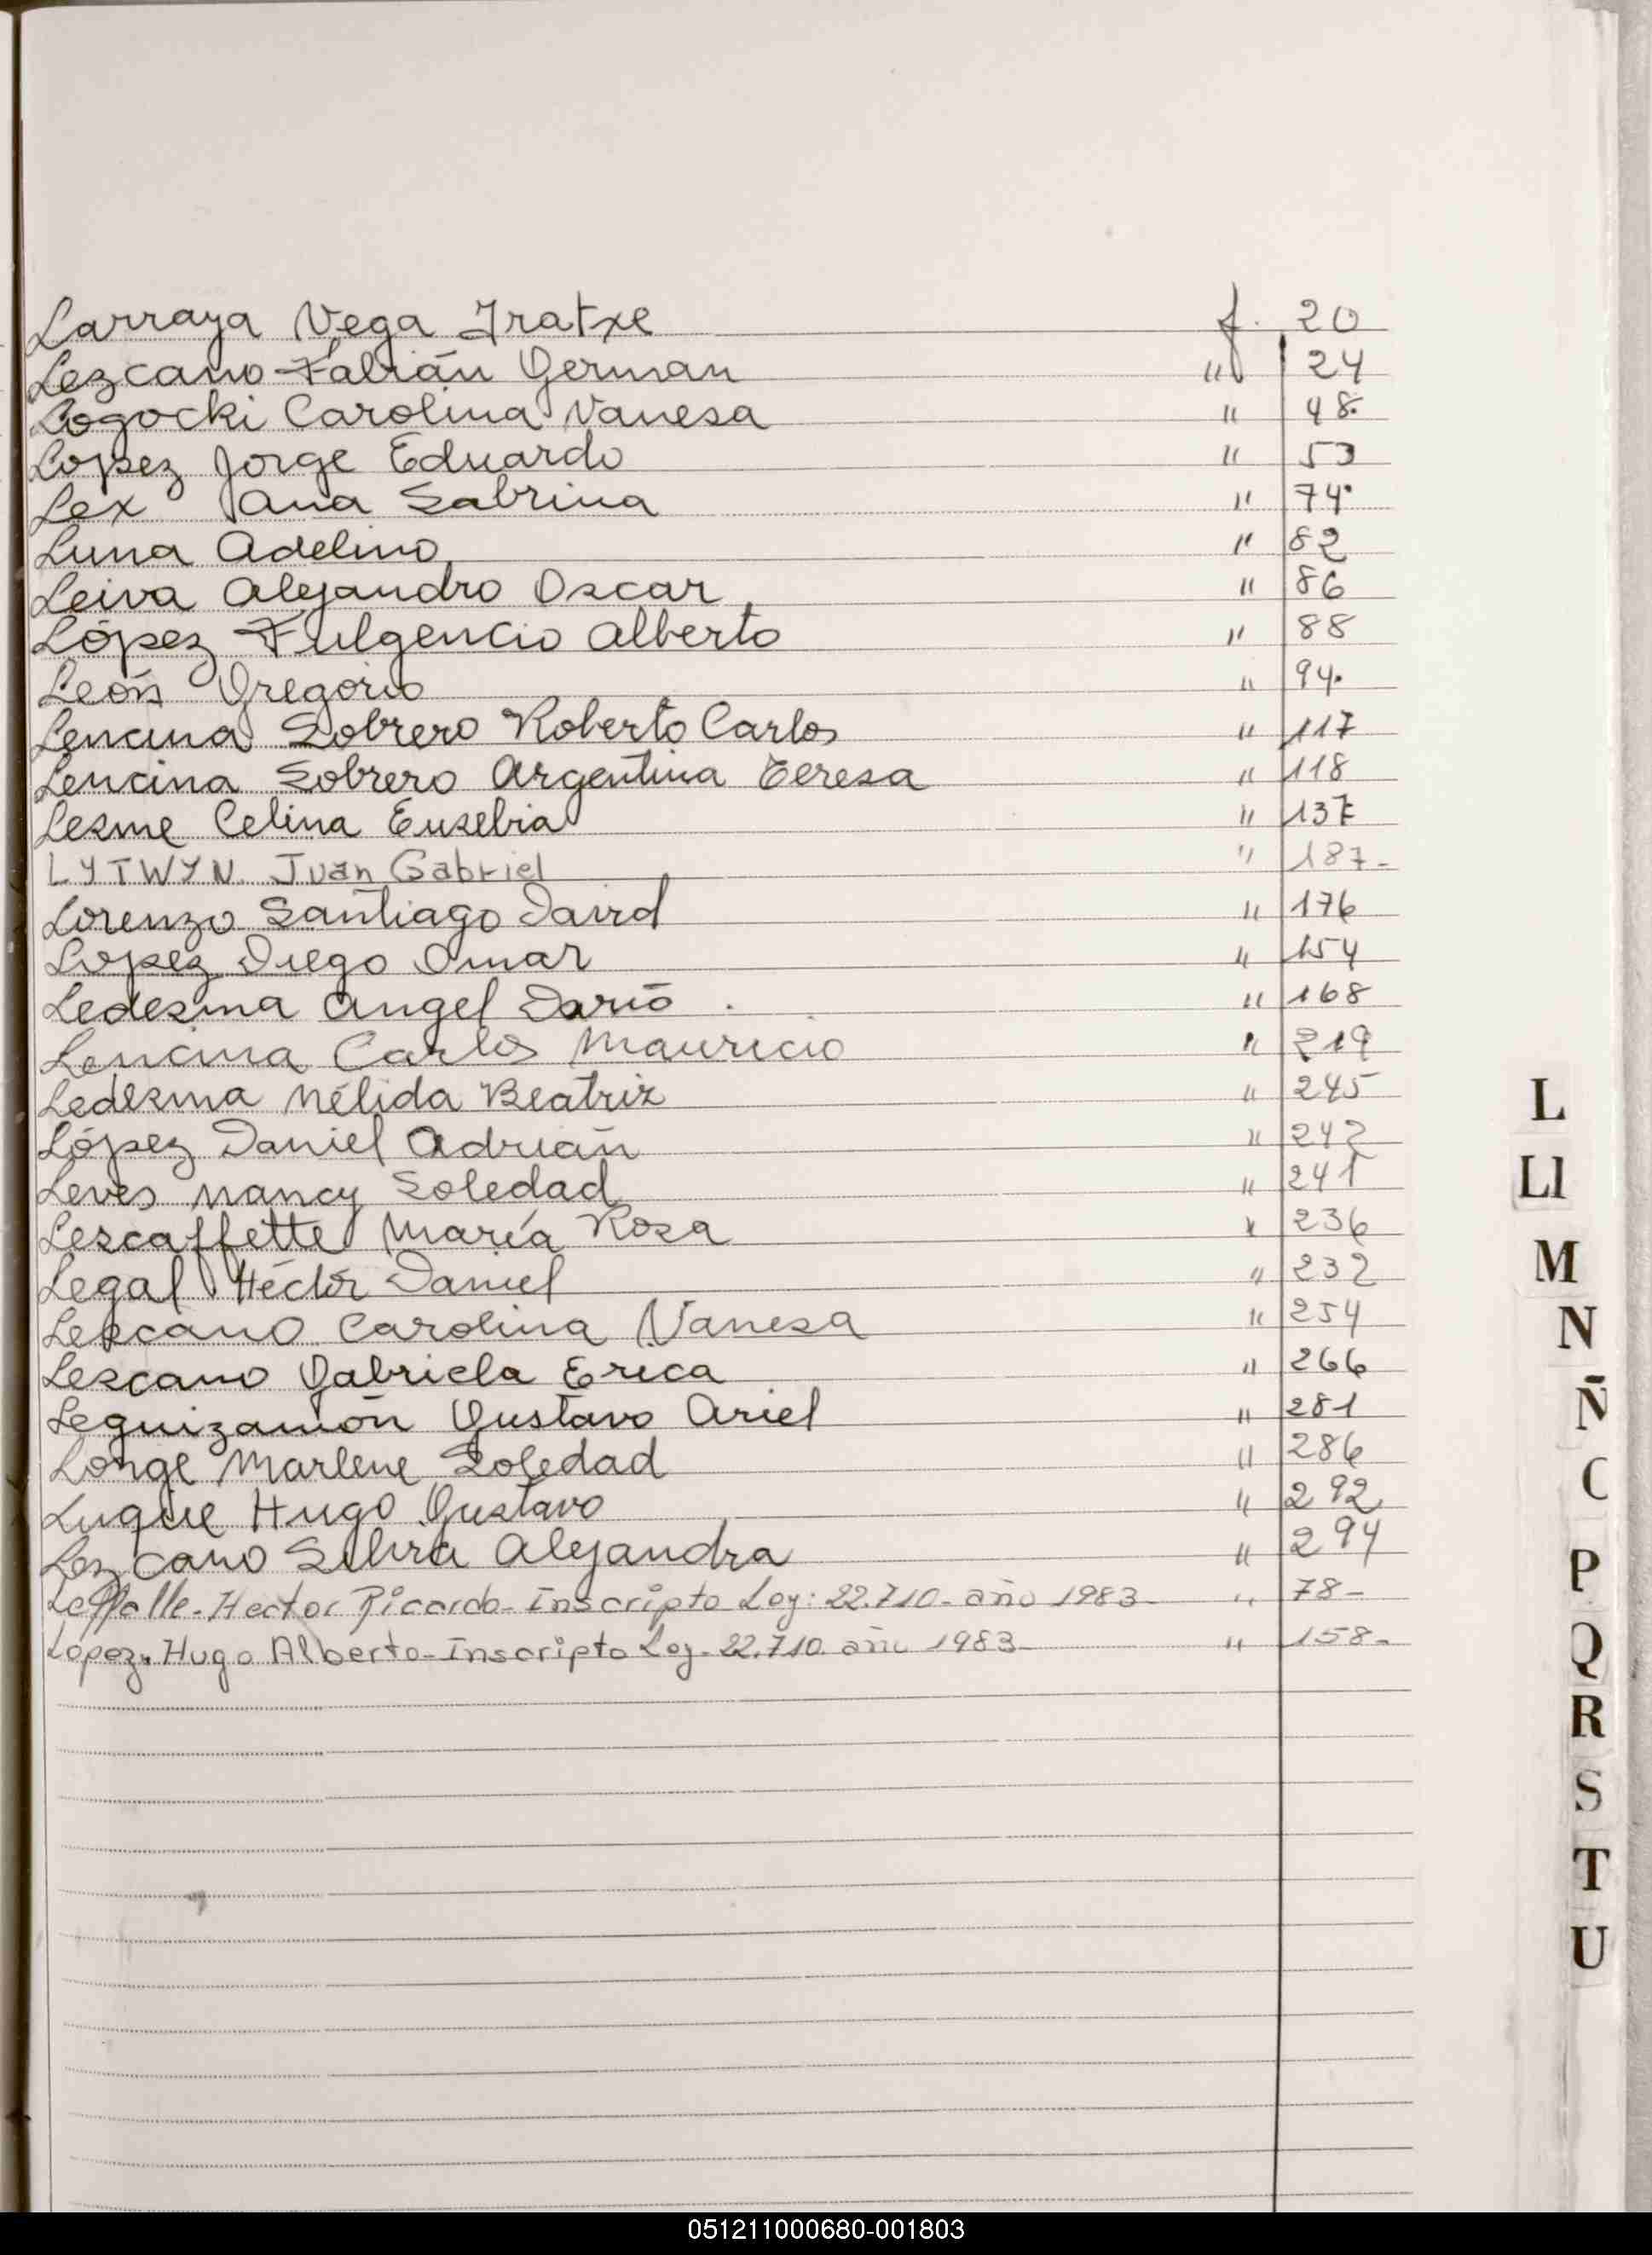 Larraya Vega Iratxe f. 20
Lezcano Fabián German " 24
Logocki Carolina Vanesa " 48.
Lopez Jorge Eduardo " 53
Lex Ana Sabrina " 74.
Luna Adelino " 82
Leiva Alejandro Oscar " 86
López Fulgencio Alberto " 88
León Gregorio " 94.
Lencina Sobrero Roberto Carlos " 117
Lencina Sobrero Argentina Teresa " 118
Lesme Celina Eusebia " 137
LYTWYN Juan Gabriel " 187-
Lorenzo Santiago David " 176
Lopez Diego Omar " 154
Ledesma Angel Darío " 168
Lencina Carlos Mauricio " 219
Ledesma Nélida Beatriz " 245
López Daniel Adrián " 242
Leves Nancy Soledad " 241
Lescaffette María Rosa " 236
Legal Héctor Daniel " 232
Lezcano Carolina Vanesa " 254
Lescano Gabriela Erica " 266
Leguizamón Gustavo Ariel " 281
Longe Marlene Soledad " 286
Luque Hugo Gustavo " 292
Lezcano Silvia Alejandra " 294
Hector Ricardo - Inscripto Ley: 22.710- año 1983- " 78-
Lopez, Hugo Alberto - Inscripto Ley- 22.710. año 1983- " 158-
L
Ll
M
N
Ñ
P
Q
R
S
T
U
051211000680-001803